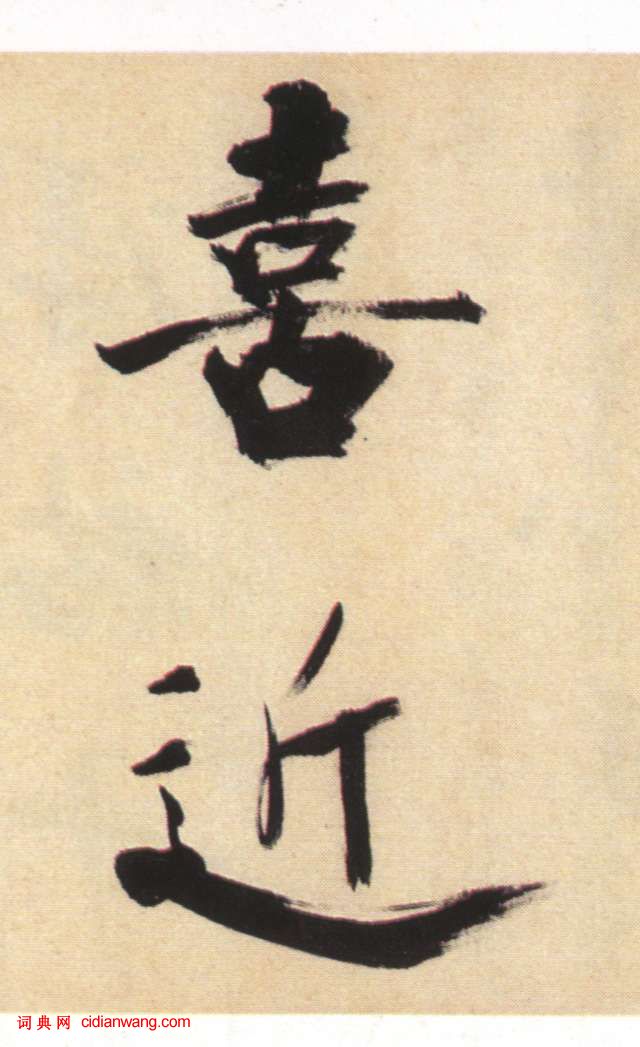 喜
近
词典网 cidianwang.com